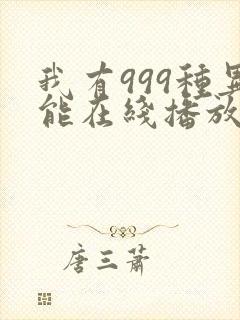 我有999種異
能在綫播放
唐三蕭